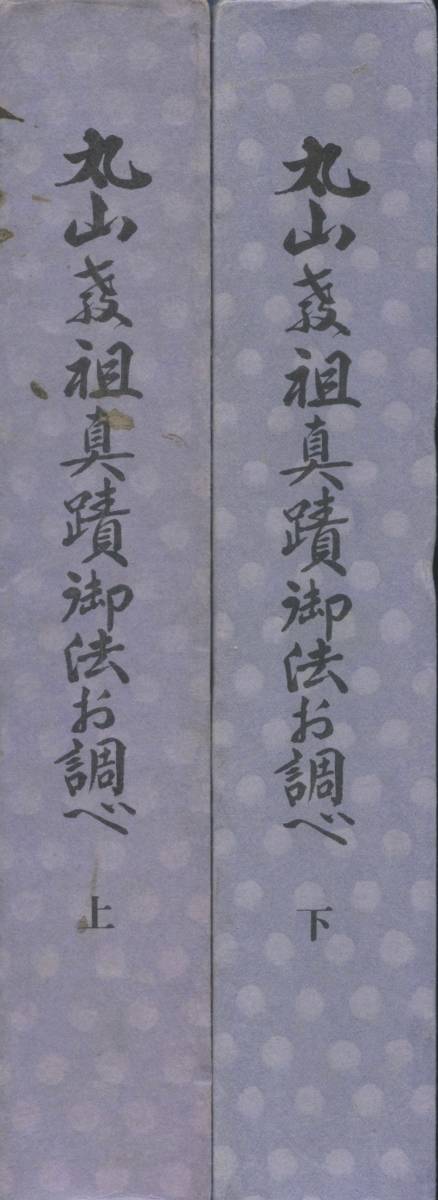 丸山教祖真蹟御法お調べ
上
丸山教祖真蹟御法お調べ
下